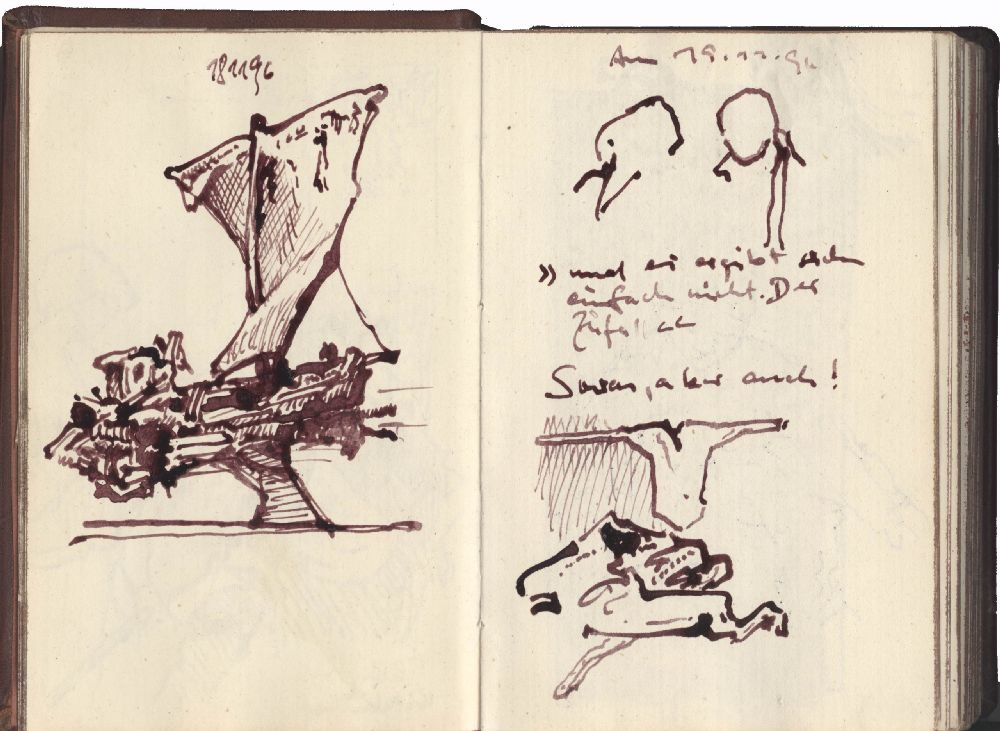 181196
Am 19.11.96
» und es ergibt sich
einfach nicht. Der
Zufall «
aber auch!